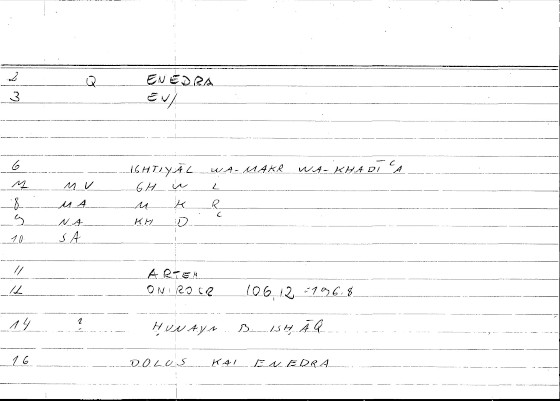 2 Q ENEDRA
3 EN/
6 IGHTIYĀL WA-MAKR WA-KHADĪʿA
MV GH W L
8 MA M K R
9 NA KH D ʿ
10 SA
11 ARTEM
12 ONIROCR 106,12 =196.8
14 ? ḤUNAYN B ISḤĀQ
16 DOLOS KAI ENEDRA